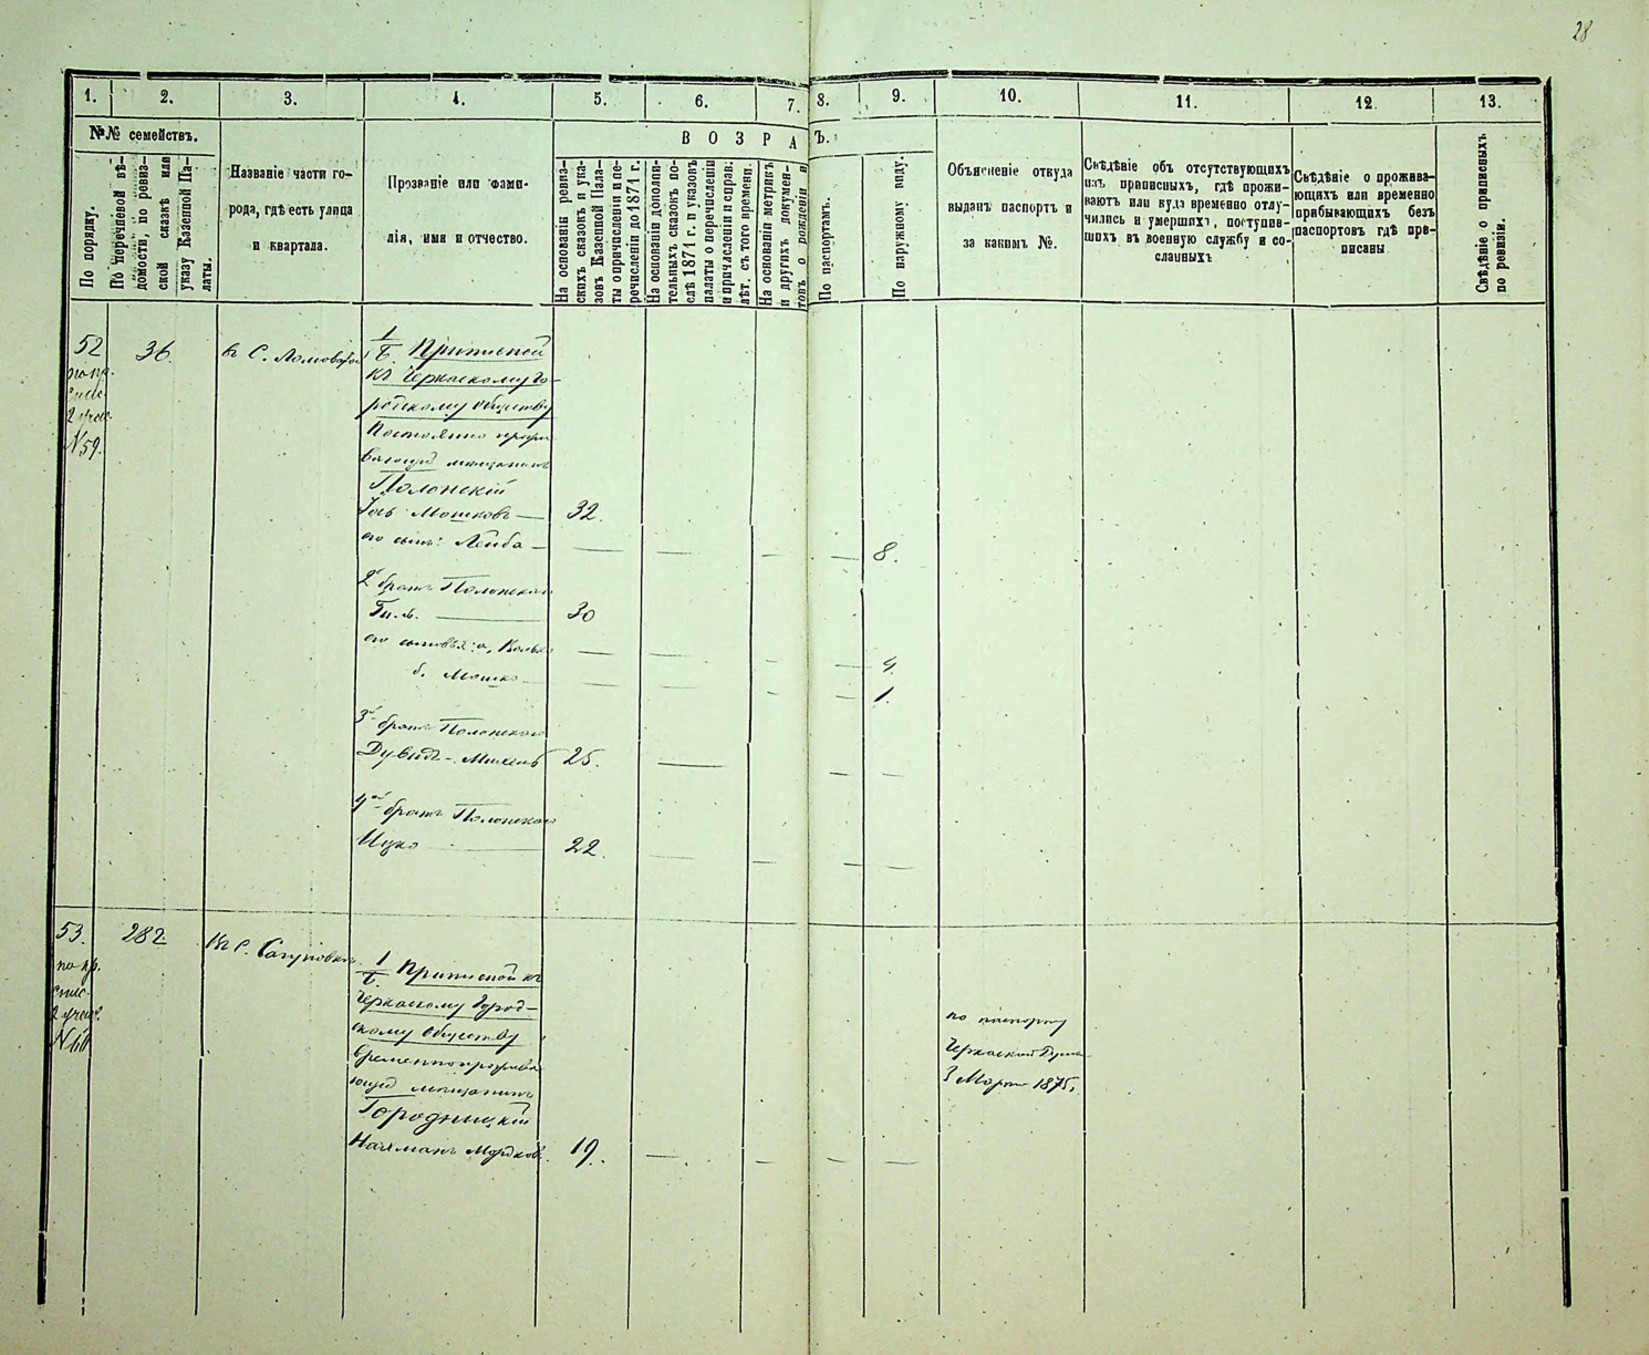 28
1. 2. 3. 4. 5. 6. 7. 8. 9. 10. 11. 12 13.
№№ семействъ.
По порядку.
По перечневой вѣ-
домости, по ревиз-
ской сказкѣ или
указу Казенной Па-
латы.
Названіе части го-
рода, гдѣ есть улица
и квартала.
Прозваніе или фами-
лія, имя и отчество.
ВОЗРАСТЪ.
На основаніи ревиз-
скихъ сказокъ и ука-
зовъ Казенной Пала-
ты о причисленіи и пе-
речисленіи до 1871 г.
На основаніи дополни-
тельныхъ сказокъ по-
слѣ 1871 г. и указовъ
палаты о перечисленіи
и причисленіи и справ:
лѣт. съ того времени.
На основаніи метрикъ
и другихъ докумен-
товъ о рожденіи и
По паспортамъ.
По наружному виду.
Объясненіе откуда
выданъ паспортъ и
за какимъ №.
Свѣдѣніе объ отсутствующихъ
изъ приписныхъ, гдѣ прожи-
ваютъ или куда временно отлу-
чились и умершихъ, поступив-
шихъ въ военную службу и со-
сланныхъ
Свѣдѣніе о прожива-
ющихъ или временно
прибывающихъ безъ
паспортовъ гдѣ при-
писаны
Свѣдѣніе о приписныхъ
по ревизіи.
52 36. въ С.
по пр.
спис.
2 учас.
№ 59.
1/Б. Приписной
къ Черкаскому Го-
родскому Обществу
Постоянно прожи-
вающій мещанинъ
Полонскій
Мошковъ — 32.
его сынъ: Лейба — 8.
2й братъ Полонскаго
30
его сыновья: а, 4
б. Мошко — 1.
3й братъ Полонскаго
Дувидъ - Михель 25.
4ый братъ Полонскаго
Ицко 22.
53. 282 въ С. Сагуновкѣ
по пр.
спис.
2 учас.
№ 60
1/Б. Приписной къ
Черкаскому Город-
скому Обществу
временно прожива-
ющій мещанинъ
Городницкій
Нахманъ Мордков. 19.
по паспорту
Черкаской Думы
3 Марта 1875.